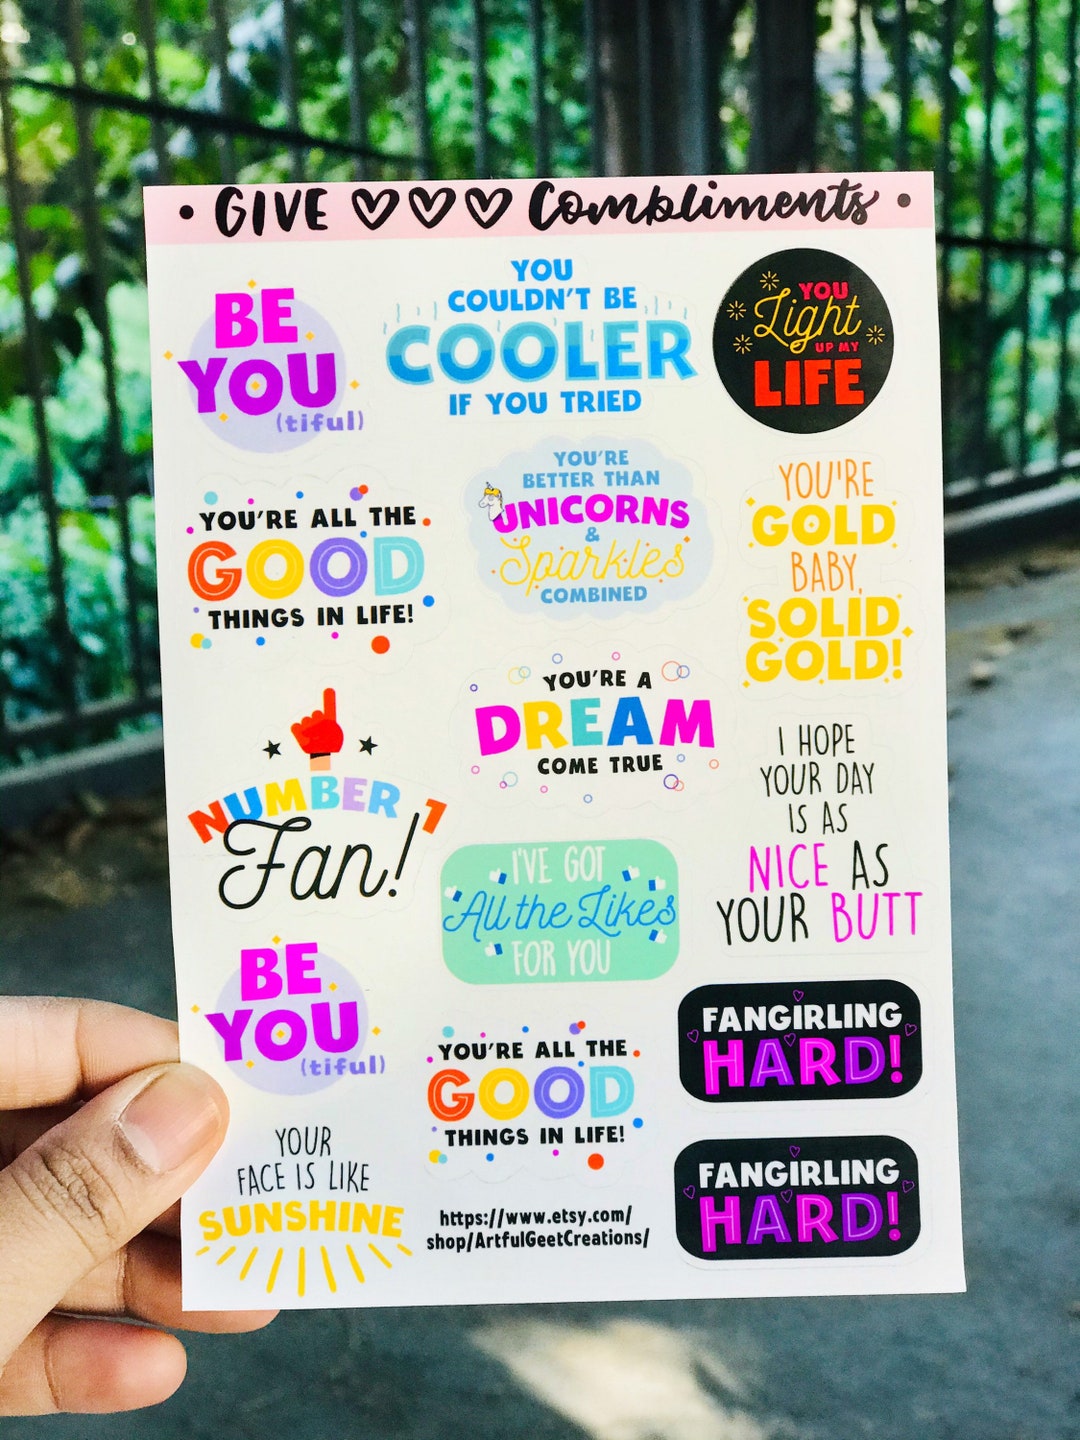 • GIVE ♡♡♡ Compliments •
BE
YOU
(tiful)
YOU
COULDN'T BE
COOLER
IF YOU TRIED
YOU
Light
UP MY
LIFE
YOU'RE ALL THE
GOOD
THINGS IN LIFE!
YOU'RE
BETTER THAN
UNICORNS
&
Sparkles
COMBINED
YOU'RE
GOLD
BABY,
SOLID
GOLD!
NUMBER 1
Fan!
YOU'RE A
DREAM
COME TRUE
I HOPE
YOUR DAY
IS AS
NICE AS
YOUR BUTT
I'VE GOT
All the Likes
FOR YOU
BE
YOU
(tiful)
YOU'RE ALL THE
GOOD
THINGS IN LIFE!
FANGIRLING
HARD!
YOUR
FACE IS LIKE
SUNSHINE
https://www.etsy.com/
shop/ArtfulGeetCreations/
FANGIRLING
HARD!